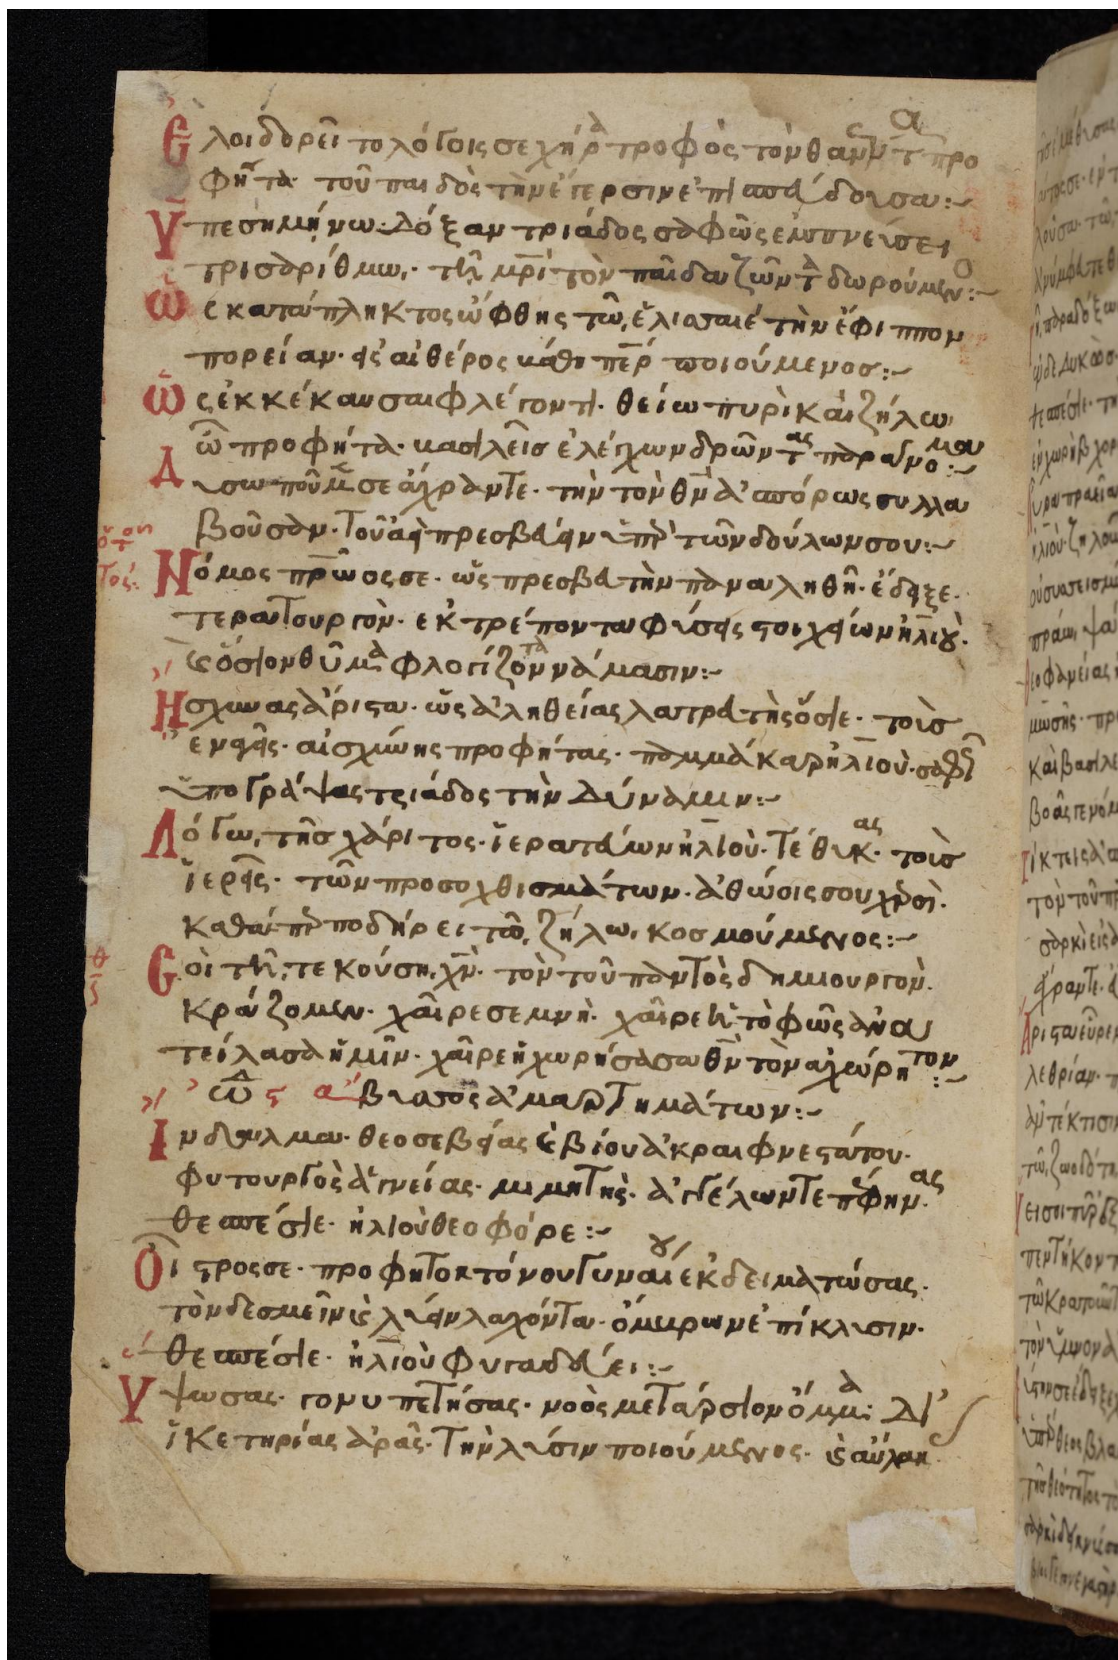 Ἐλοιδορεῖ το λόγοις σε χήρα τροφὸς τὸν θαυμαστ προ
φήτα τοῦ παιδὸς τὴν ἔγερσιν ἐπισπεύδουσα:~
Υπεσημήνω δόξαν τριάδος σαφῶς ἐμπνεύσει
τρισαρίθμω, τῆ μρι τὸν παῖδα ζῶντα δωρούμενο:~
Ὡς καταπληκτος ὤφθης τῶ, ἐλισσαιέ τὴν ἔφιππον
πορείαν. εἰς αἰθέρος καθαπερ ποιούμενος:~
Ὡς ἐκκέκαυσαι φλέγοντι. θείω πυρὶ καὶ ζήλω
ὦ προφήτα. βασιλεῖς ἐλέγχων δρῶντας παράνομα:~
Δυσωποῦμεν σε ἄχραντε. τὴν τὸν θν ἀσπόρως συλλα
βοῦσαν. τοῦ ἀεὶ πρεσβεύειν ὑπὲρ τῶν δούλων σου:~
Νόμος πρῶος σε. ὡς πρεσβευτὴν παναληθῆ. ἔδειξε.
τερατουργὸν. ἐκτρέποντα φύσεις στοιχείων ἠλιοὺ.
καὶ ὅσιον θῦμα φλογίζοντα νάμασιν:~
Ησχυνας ἄριστα. ὡς ἀληθείας λατρευτὴς ὅσιε. τοὺς
ἐναγεῖς. αἰσχύνης προφήτας. παμμάκαρ ἠλιοὺ. σαφῶς
ὑπογράψας τριάδος τὴν δύναμιν:~
Λόγω, τῆς χάριτος. ἱερατεύων ἠλιοὺ. τέθυκας. τοὺς
ἱερεῖς. τῶν προσοχθισμάτων. ἀθώοις σου χερσὶ.
καθάπερ ποδήρει τῶ, ζήλω, κοσμούμενος:~
Σοὶ τῆ, τεκούση, χν. τὸν τοῦ παντὸς δημιουργὸν.
κράζομεν. χαῖρε σεμνὴ. χαῖρε ἡ τὸ φῶς ἀνα
τείλασα ἡμῖν. χαῖρε ἡ χωρήσασα θν τὸν ἀχώρητον:~
ὠδ ϛ ἄβυσσος ἁμαρτημάτων:~
Ινδαλμα. θεοσεβείας καὶ βίου ἀκραιφνεστάτου.
φυτουργὸς ἁγνείας. μιμητὴς. ἀγγέλων τε πέφηνας.
θεσπέσιε. ἠλιοὺ θεοφόρε:~
Οἶστρος σε. προφητοκτόνου γυναικὸς ἐκδειματώσας.
τὸν δεσμεῖν καὶ λύειν λαχόντα. ὄμβρων ἐπίκλισιν.
θεσπέσιε. ἠλιοὺ φυγαδεύει:~
Υψωσας. γονυπετήσας. νοὸς μετάρσιον ὄμμα. δι
ἱκετηρίας ἀρᾶς. τὴν λύσιν ποιούμενος.